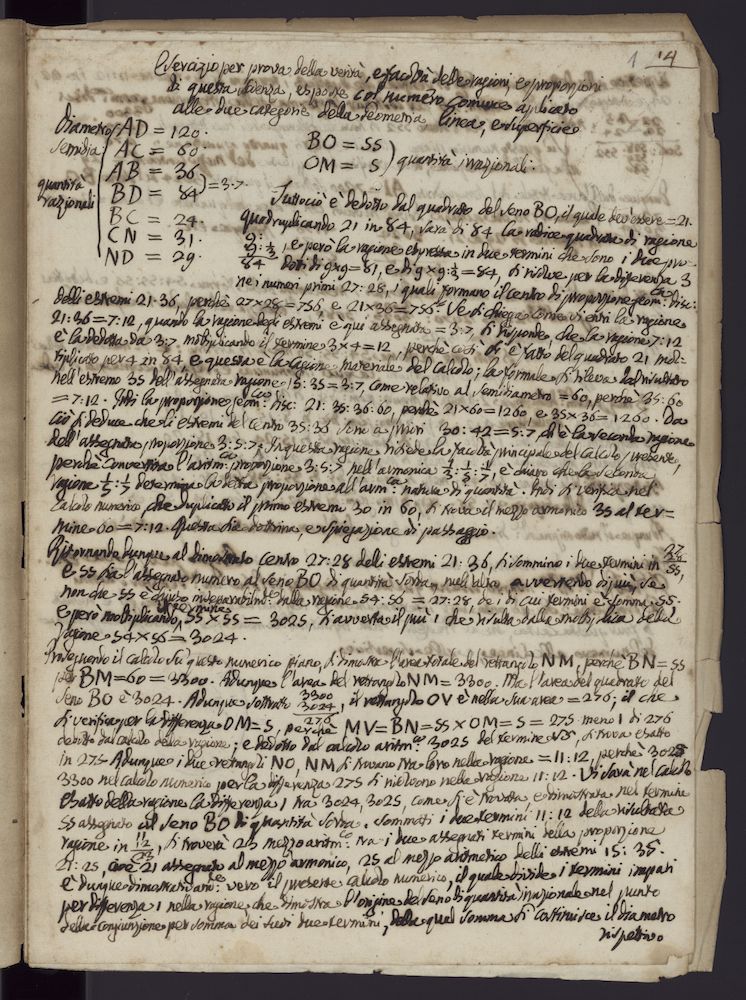 1 14
Esercizio per prova della verità, e facoltà delle ragioni, e proporzioni
di questa scienza, esposte col numero comune aplicato
alle due categorie della Geometria linea, e superficie
Diametro AD = 120.
Semidia AC = 60.
AB = 36
BD = 84 ) = 3:7.
quantità razionali
BC = 24.
CN = 31.
ND = 29.
BO = 55
OM = 5 ) quantità irrazionali.
Tuttociò è dedotto dal quadrato del seno BO, il quale dev'essere = 21.
quadruplicando 21 in 84, sarà di 84 la radice quadrata di ragione
9: 9 1/3, e però la ragione espressa in due termini che sono i due pro-
84 dotti di 9x9 = 81, e di 9 x 9 1/3 = 84, si risolve per la differenza 3
ne i numeri primi 27:28, i quali formano il centro di proporzione geom:ca disc:
delli estremi 21:36, perchè 27x28 = 756 e 21x36 = 756. Se si chiega come si entri la ragione
21:36 = 7:12, quando la ragione degli estremi è qui assegnata = 3:7, si risponde, che la ragione 7:12
è la dedotta da 3:7 moltiplicando il termine 3x4 = 12, perchè così si è fatto del quadrato 21 mol-
tiplicato per 4 in 84 e questa è la cagione materiale del calcolo; la formale si rileva dal risultato
nell'estremo 35 dell'assegnata ragione 15:35 = 3:7, come relativo al semidiametro = 60, perchè 35:60
= 7:12. Indi la proporzione geom:ca disc: 21:35:36:60, perchè 21x60 = 1260, e 35x36 = 1260. Da
ciò si deduce che li estremi del centro 35:36 sono a 30:42 = 5:7, ch'è la seconda ragione
dell'assegnata proporzione 3:5:7. In questa ragione risiede la facoltà principale del calcolo presente,
perchè convertita l'aritm:ca proporzione 3:5:7 nell'armonica 1/3:1/5:1/7, è chiaro che la seconda
ragione 1/5:1/7 determina la detta proporzione all'arm:ca natura di quantità. Indi si verifica nel
calcolo numerico, che duplicato il primo estremo 30 in 60, si trova il mezzo armonico 35 al ter-
mine 60 = 7:12. Questa sia dottrina, e spiegazione di passaggio.
Ritornando dunque al dimostrato centro 27:28 delli estremi 21:36, si sommino i due termini in 27 28 55,
e 55 sia l'assegnato numero al seno BO di quantità sorda, null'altro avvertendo di più, se
non che 55 è diviso inseparabilm:te dalla ragione 54:56 = 27:28, de i di cui termini è somma 55.
e però moltiplicando il termine 55 x 55 = 3025, si avverta il più 1 che risulta dalla moltiplica della
ragione 54x56 = 3024.
Proseguendo il calcolo su questo numerico piano, si dimostra l'area totale del rettangolo NM, perchè BN = 55
per BM = 60 = 3300. Adunque l'area del rettangolo NM = 3300. Ma l'area del quadrato del
seno BO è 3024. Adunque sottratto 3300 3024 276, il rettangolo OV è nella sua area = 276; il che
si verifica per la differenza OM = 5, perchè MV = BN = 55 x OM = 5 = 275 meno 1 di 276
dedotto dal calcolo della ragione; e dedotto dal calcolo aritm:co 3025 del termine 55, si trova esatto
in 275 Adunque i due rettangoli NO, NM si trovano tra loro nella ragione = 11:12, perchè 3025
3300 nel calcolo numerico per la differenza 275 si risolvono nella ragione 11:12. Vi sarà nel calcolo
esatto della ragione la differenza 1 tra 3024, 3025, come si è trovata, e dimostrata nel termine
55 assegnato al seno BO di quantità sorda. Sommati i due termini 11:12 della risultata
ragione in 11 12 23, si troverà 23 mezzo aritm:co tra i due assegnati termini della proporzione
21:25, cioè 21 assegnato al mezzo armonico, 25 al mezzo aritmetico delli estremi 15:35.
è dunque dimostrativam:te vero il presente calcolo numerico, il quale divide i termini impari
per differenza 1 nella ragione che dimostra l'origine del seno di quantità irrazionale nel punto
della congiunzione per somma dei suoi due termini, dalla qual somma si costituisce il diametro
rispettivo